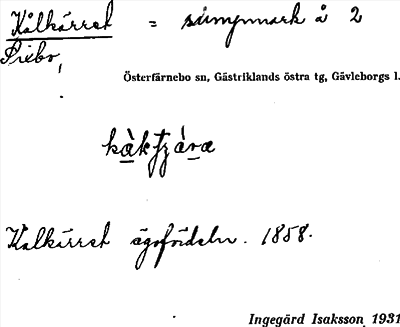 Kålkärret = sumpmark å 2
Prebo,
Österfärnebo sn, Gästriklands östra tg, Gävleborgs l.
Kålkärret ägofördeln. 1858.
Ingegärd Isaksson 1931